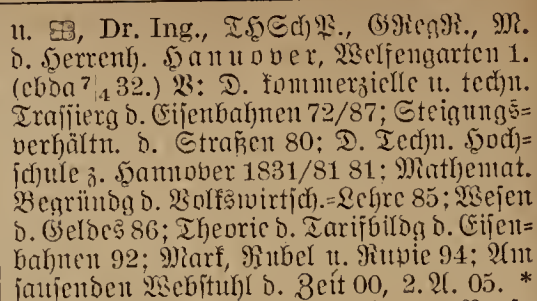 u. Dr. Ing., THSchP., GRegR., M.
d. Herrenh. Hannover, Welfengarten 1.
(ebda 7|4 32.) V: D. kommerzielle u. techn.
Trassierg d. Eisenbahnen 72/87; Steigungs=
verhältn. d. Straßen 80; D. Techn. Hoch=
schule z. Hannover 1831/81 81; Mathemat.
Begründg d. Volkswirtsch.=Lehre 85; Wesen
d. Geldes 86; Theorie d. Tarifbildg d. Eisen=
bahnen 92; Mark, Rubel u. Rupie 94; Am
sausenden Webstuhl d. Zeit 00, 2. A. 05. *